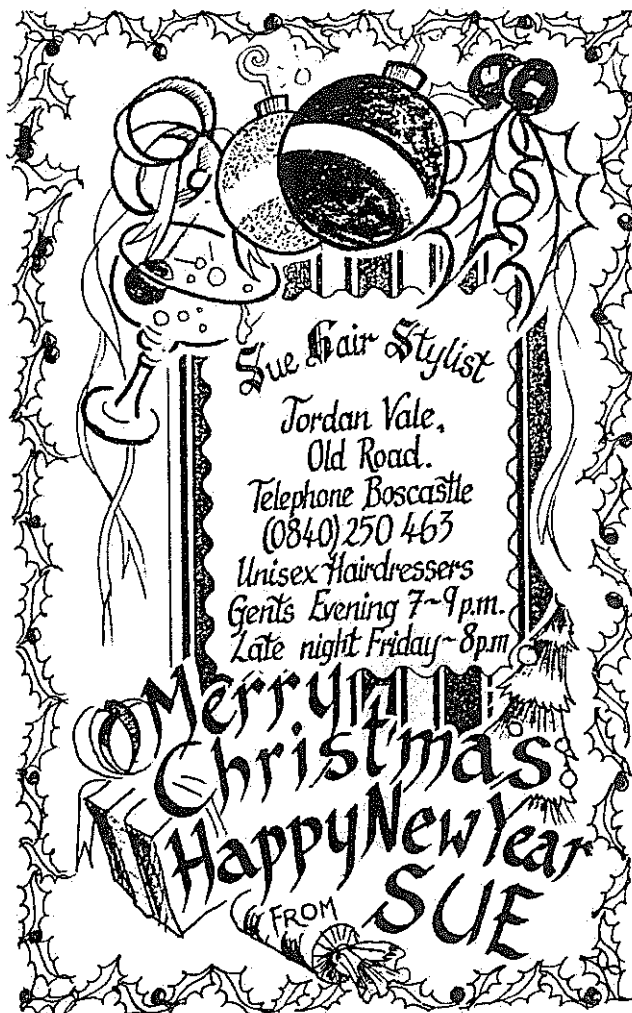 Sue Hair Stylist
Jordan Vale,
Old Road.
Telephone Boscastle
(0840) 250 463
Unisex Hairdressers
Gents Evening 7~9 p.m.
Late night Friday~8pm
Merry
Christmas
Happy New Year
FROM SUE